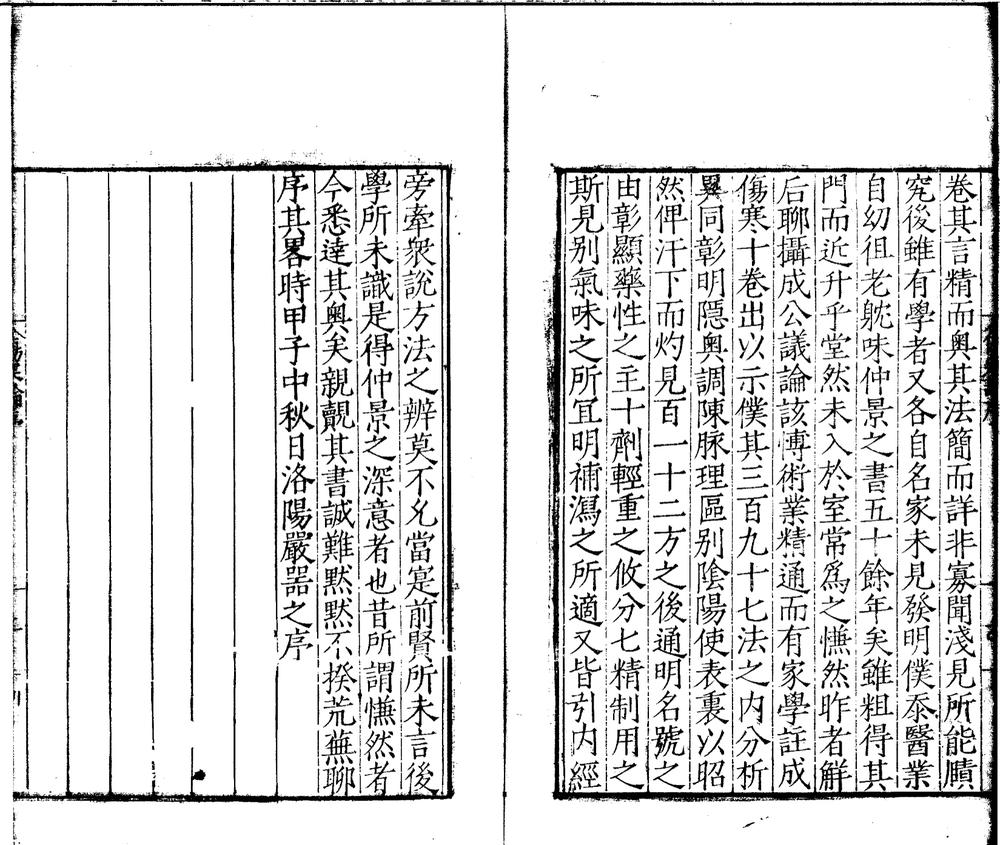 卷其言精而奧其法簡而詳非寡聞淺見所能賾
究後雖有學者又各自名家未見發明僕忝醫業
自幼徂老躭味仲景之書五十餘年矣雖粗得其
門而近升乎堂然未入於室常爲之慊然昨者觧
后聊攝成公議論該博術業精通而有家學註成
傷寒十卷出以示僕其三百九十七法之内分析
異同彰明隱奧調陳脉理區别隂陽使表裏以昭
然俾汗下而灼見百一十二方之後通明名號之
由彰顯藥性之主十劑輕重之攸分七精制用之
斯見别氣味之所冝明補瀉之所適又皆引内經
旁牽衆說方法之辨莫不允當寔前賢所未言後
學所未識是得仲景之深意者也昔所謂慊然者
今悉達其奧矣親覿其書誠難黙黙不揆荒蕪聊
序其畧時甲子中秋日洛陽嚴器之序